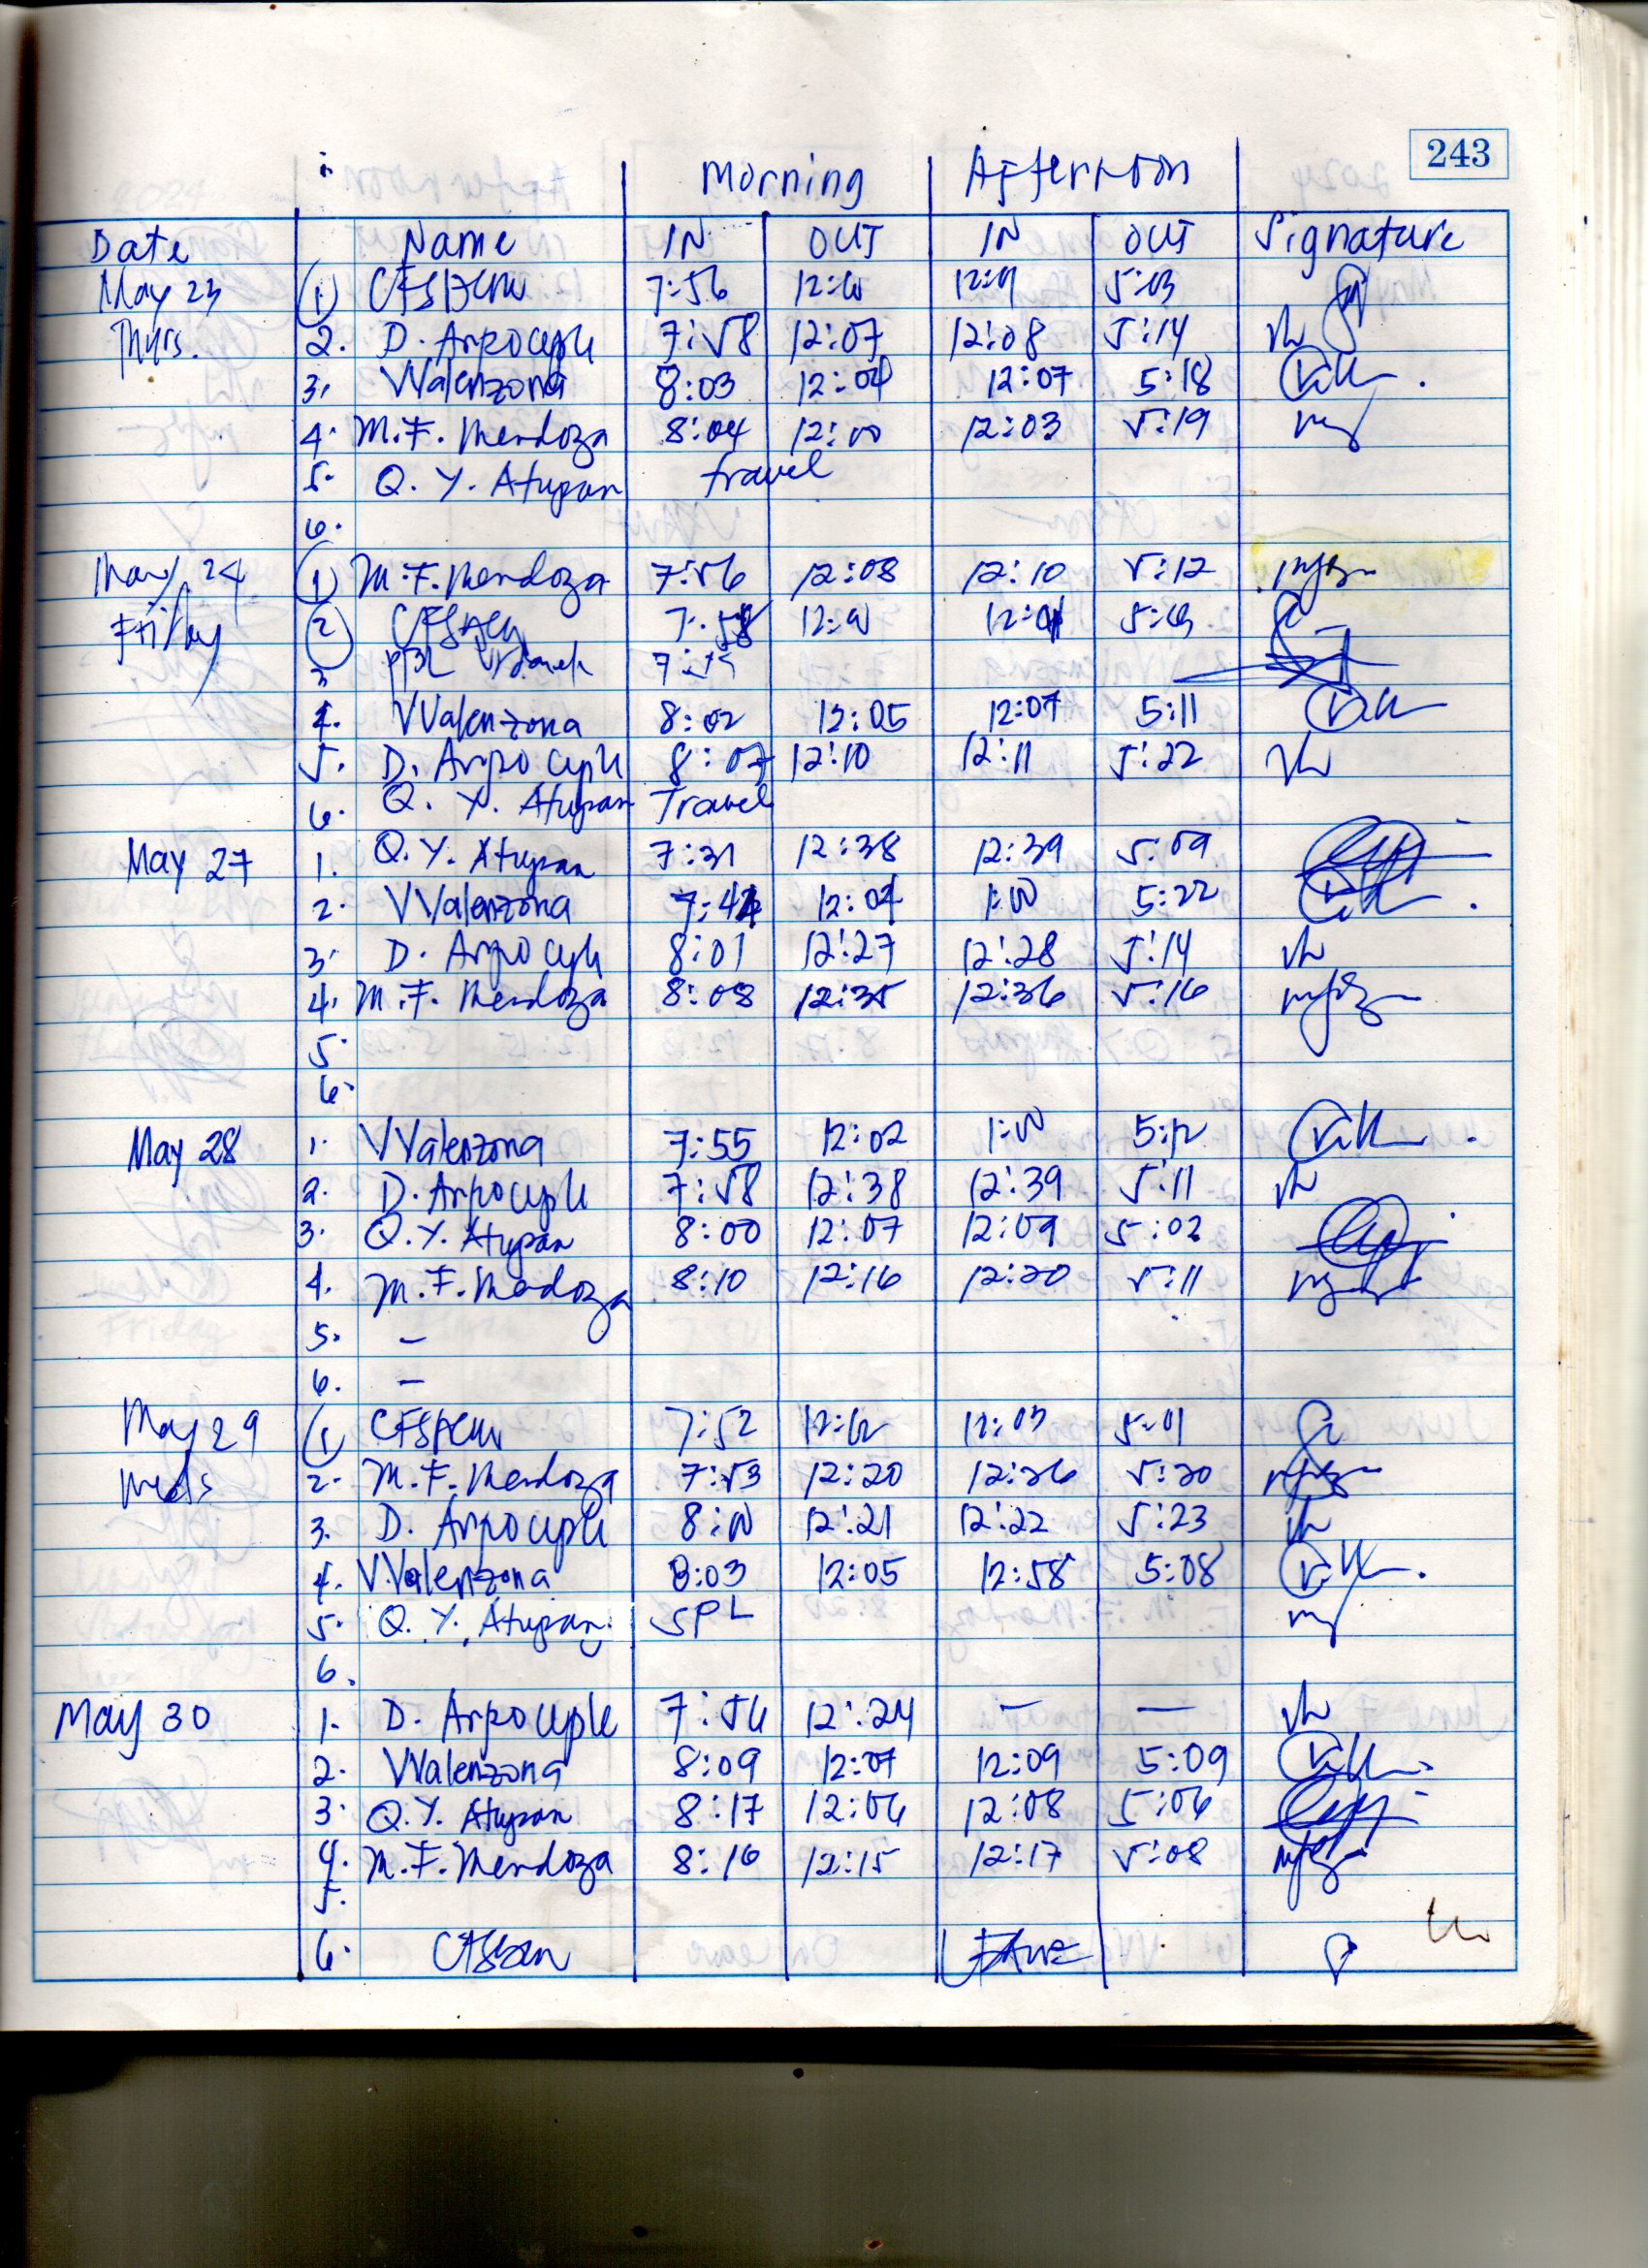 243
Morning Afternoon
Date Name IN OUT IN OUT Signature
May 23 1 7:56 5:03
Thurs. 2. D. Arpocyple 7:58 12:07 12:08 5:14
3. VValenzona 8:03 12:04 12:07 5:18
4. M.F. Mendoza 8:04 12:00 12:03 5:19
5. Q. Y. Atupan travel
6.
May 24 1 M.F. Mendoza 7:56 12:08 12:10 5:12
Friday 2 7:58
3
4. VValenzona 8:02 12:05 12:07 5:11
5. D. Arpocyple 8:07 12:10 12:11 5:22
6. Q. Y. Atupan Travel
May 27 1. Q. Y. Atupan 7:31 12:38 12:39 5:09
2. VValenzona 12:04 1:00 5:22
3. D. Arpocyple 8:01 12:27 12:28 5:14
4. M.F. Mendoza 8:08 12:35 12:36 5:16
5.
6.
May 28 1. VValenzona 7:55 12:02 1:00 5:12
2. D. Arpocyple 7:58 12:38 12:39 5:11
3. Q.Y. Atupan 8:00 12:07 12:09 5:02
4. M.F. Mendoza 8:10 12:16 12:20 5:11
5. –
6. –
May 29 1 7:52 12:03 5:01
Weds 2. M.F. Mendoza 7:53 12:20 12:26 5:20
3. D. Arpocyple 8:00 12:21 12:22 5:23
4. V.Valenzona 8:03 12:05 12:58 5:08
5. Q. Y. Atupan SPL
6.
May 30 1. D. Arpocyple 7:56 12:24 — —
2. VValenzona 8:09 12:07 12:09 5:09
3. Q.Y. Atupan 8:17 12:06 12:08 5:06
4. M.F. Mendoza 8:16 12:15 12:17 5:08
5.
6. LEAVE